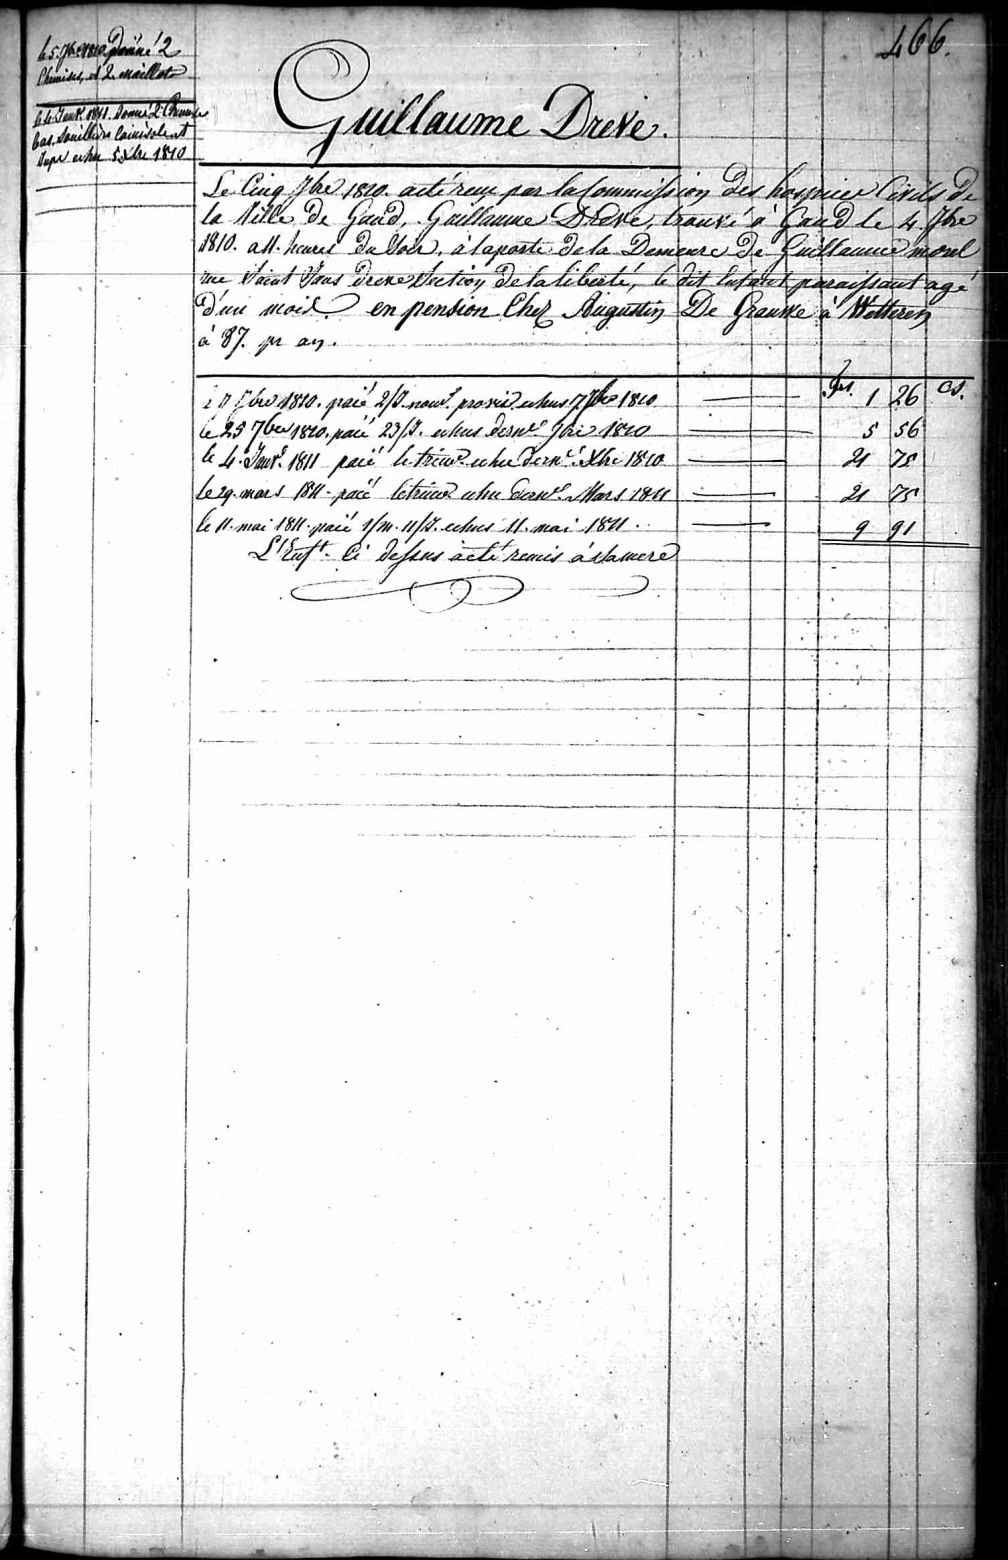 466.
le 5. 7bre 1810 donné 2
Chemises, et 2 maillots
le 4 Janvr 1811. donné 2 Chemises
bas
echu 5 Xbre 1810
Guillaume Dreve.
Le Cinq 7bre 1810. a été reçu par la Commission des hospices Civils de
la Ville de Gand, Guillaume Dreve, trouvé à Gand le 4. 7bre
1810. a 11. heures du Soir, à la porte de la Demeure de Guillaume
rue Saint dreve Section de la liberté, le dit Enfant paraissant agé
d'un mois. en pension Chez Augustin De Grauwe à Wetteren
à 87. pr an.
frs. cs.
7bre 1810. paié 2/J. nour. echus 7 7bre 1810 1 26
le 25 7bre 1810. paié 23/J. echus dernr 7bre 1810 5 56
le 4. Janvr. 1811 paié le trimre. echu dernr. Xbre 1810 21 75
le 29. mars 1811. paié le trimre echu dernr. Mars 1811 21 75
le 11. mai 1811. paié 1/m. 11/J. echus 11. mai 1811. 9 91
L'Enft. Ci dessus a été remis à sa mere